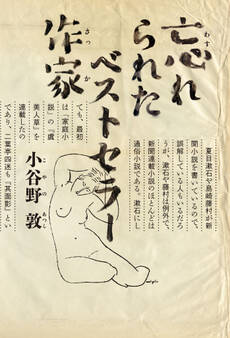 忘れ
られた
ベストセラー
作家
小谷野 敦
夏目漱石や島崎藤村が新
聞小説を書いているので、
誤解している人もいるだろ
うが、漱石や藤村は例外で、
新聞連載小説のほとんどは
通俗小説である。漱石にし
ても、最初
は「家庭小
説」の『虞
美人草』を
連載したの
であり、二葉亭四迷も『其面影』とい